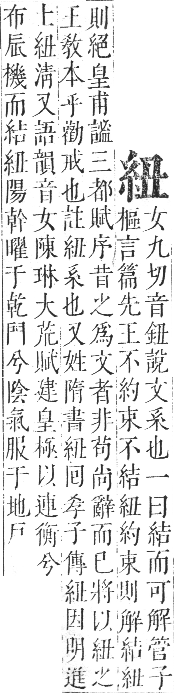 紐
女九切音鈕說文系也一曰結而可解管子
樞言篇先王不約束不結紐約束則解結紐
則絕皇甫謐三都賦序昔之為文者非苟尚辭而已將以紐之
王敎本乎勸戒也註紐系也又姓隋書紐回孝子傳紐因明進
上紐淸又語韻音女陳琳大荒賦建皇極以連衡兮
布辰機而結紐陽幹曜于乾門兮陰氣服于地戶